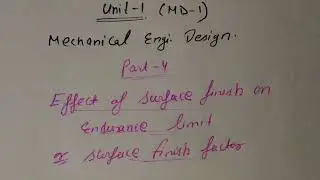 Unit-1 (MD-1)
Mechanical Engi. Design.
Part-4
Effect of surface finish on
Endurance limit
or surface finish factor